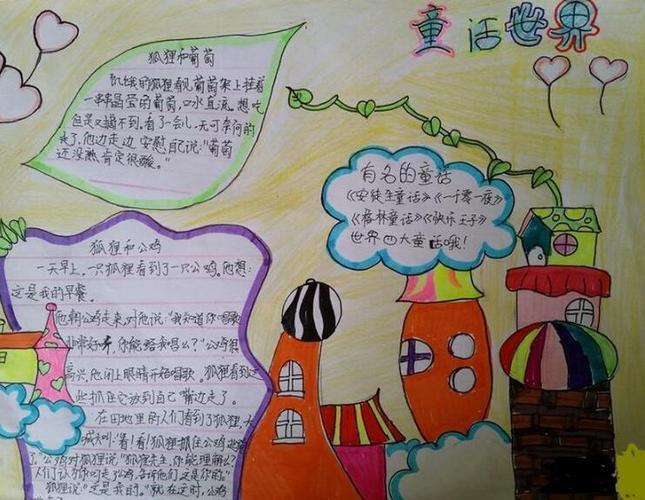 童话世界
狐狸和葡萄
饥饿的狐狸看见葡萄架上挂着
一串串晶莹的葡萄,口水直流。想吃
但是又摘不到。看了一会儿,无可奈何的
走了,他边走边安慰自己说:“葡萄
还没熟肯定很酸。”
有名的童话
《安徒生童话》《一千零一夜》
《格林童话》《快乐王子》
世界四大童话哦!
狐狸和公鸡
一天早上,一只狐狸看到了一只公鸡。他想:
这是我的早餐。
他朝公鸡走来,对他说:“我知道你唱歌
非常好听,你能唱给我吗么?”公鸡很
高兴,他闭上眼睛开始唱歌。狐狸看到这
些抓住它放到自己嘴边走了。
在田地里的人们看到了狐狸,大
喊大叫:“看!看!狐狸抓住公鸡
了。”公鸡对狐狸说:“狐狸先生,你能理解么?
狐狸说:“这是我的。”就在这时,公鸡